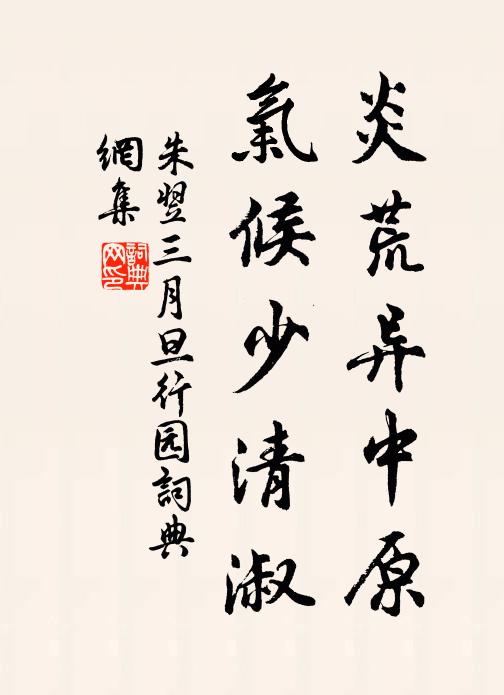 炎荒异中原
氣候少清淑
朱翌三月旦行园詞典
網集
詞典網印